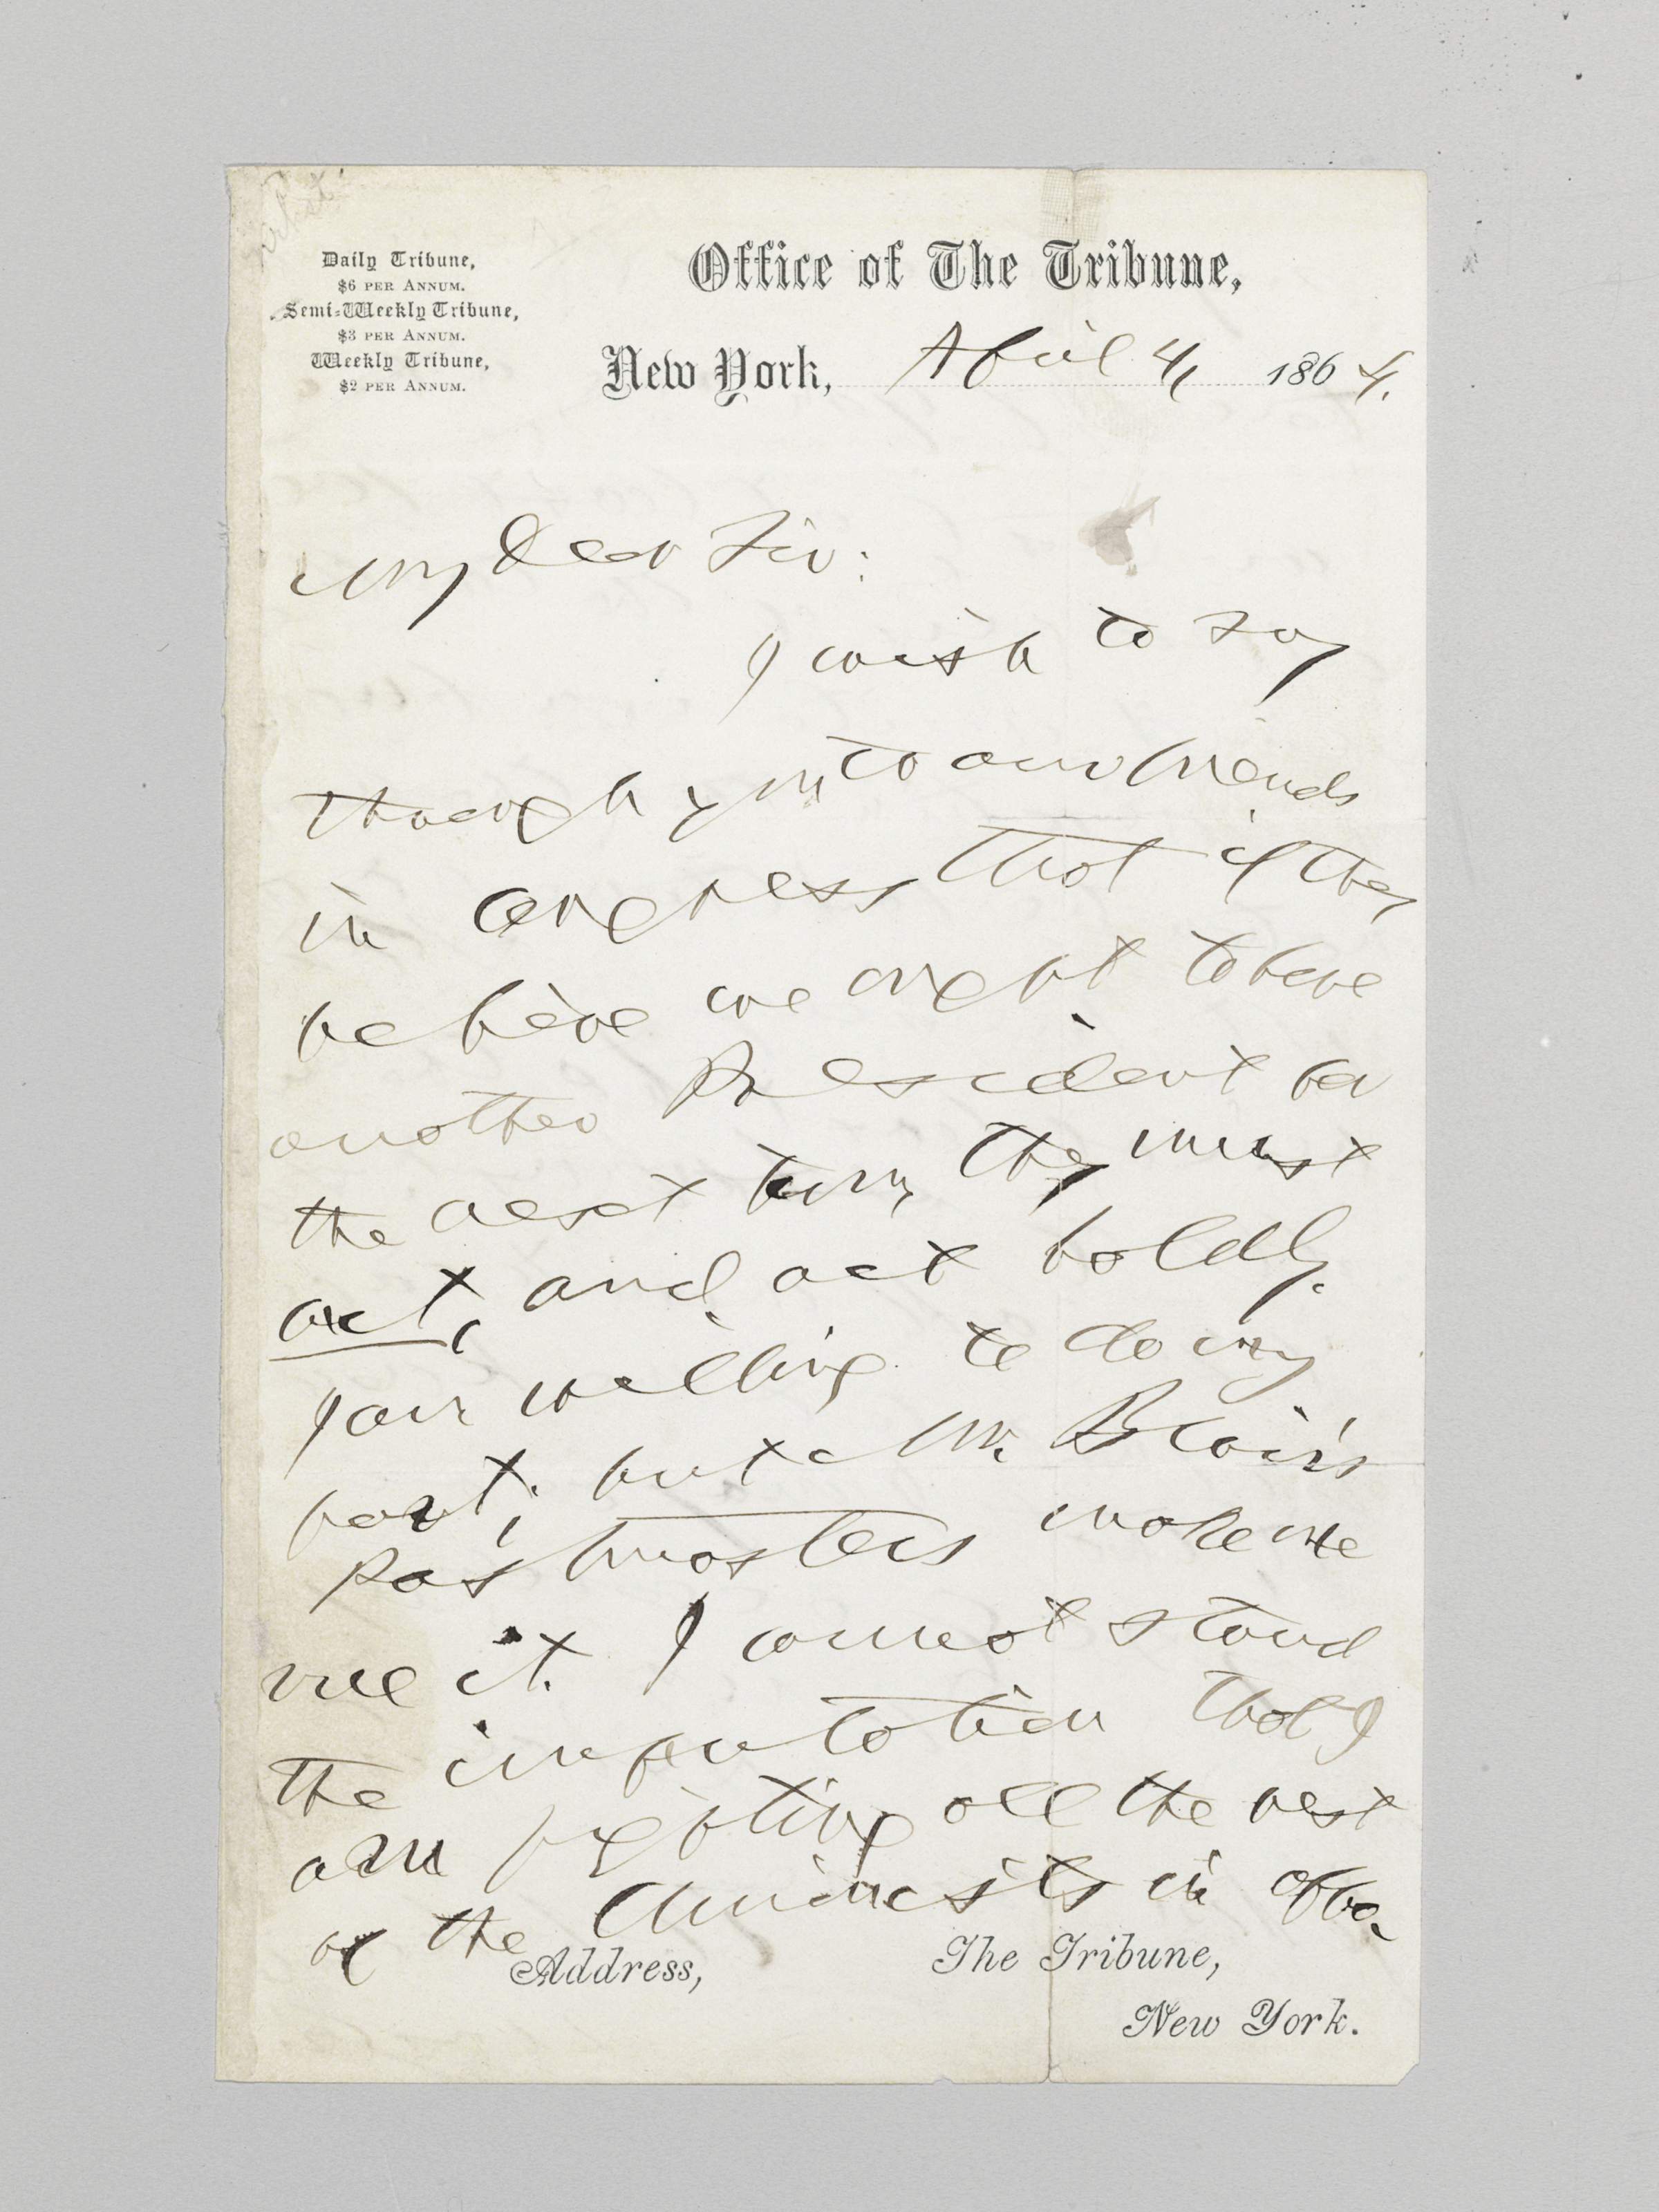 Daily Tribune,
$6 PER ANNUM.
Semi-Weekly Tribune,
$3 PER ANNUM.
Weekly Tribune,
$2 PER ANNUM.
Office of The Tribune,
New York, April 4, 1864.
My Dear Sir:
I wish to say
through you to our friends
in Congress that if they
believe we ought to have
another President for
the next term, they must
act, and act boldly.
I am willing to do my
part; but Mr. Blair's
Postmasters make me
rue it. I cannot stand
the imputation that I
am fighting all the rest
of the Unionists in
Address, The Tribune,
New York.